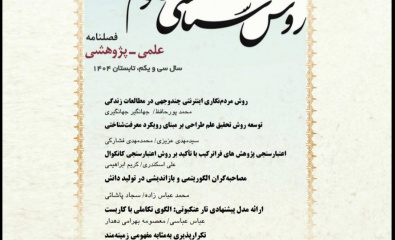 روش‌شناسی علوم
فصلنامه
علمی-پژوهشی
سال سی و یکم، تابستان ۱۴۰۴
روش مردم‌نگاری اینترنتی چندوجهی در مطالعات زندگی
محمد پورحافظ/ جهانگیر جهانگیری
توسعه روش تحقیق علم طراحی بر مبنای رویکرد معرفت‌شناختی
سیدمهدی عزیزی/ محمدمهدی فشارکی
اعتبارسنجی پژوهش های فراترکیب با تأکید بر روش اعتبارسنجی کانکوال
علی اسکندری/ کریم ابراهیمی
مصاحبه‌گران الگوریتمی و بازاندیشی در تولید دانش
محمد عباس زاده/ سجاد پاشائی
ارائه مدل پیشنهادی تار عنکبوتی: الگوی تکاملی با کاربست
عباس عباسی/ معصومه بهرامی دهدار
تکرارپذیری به‌مثابه مفهومی زمینه‌مند